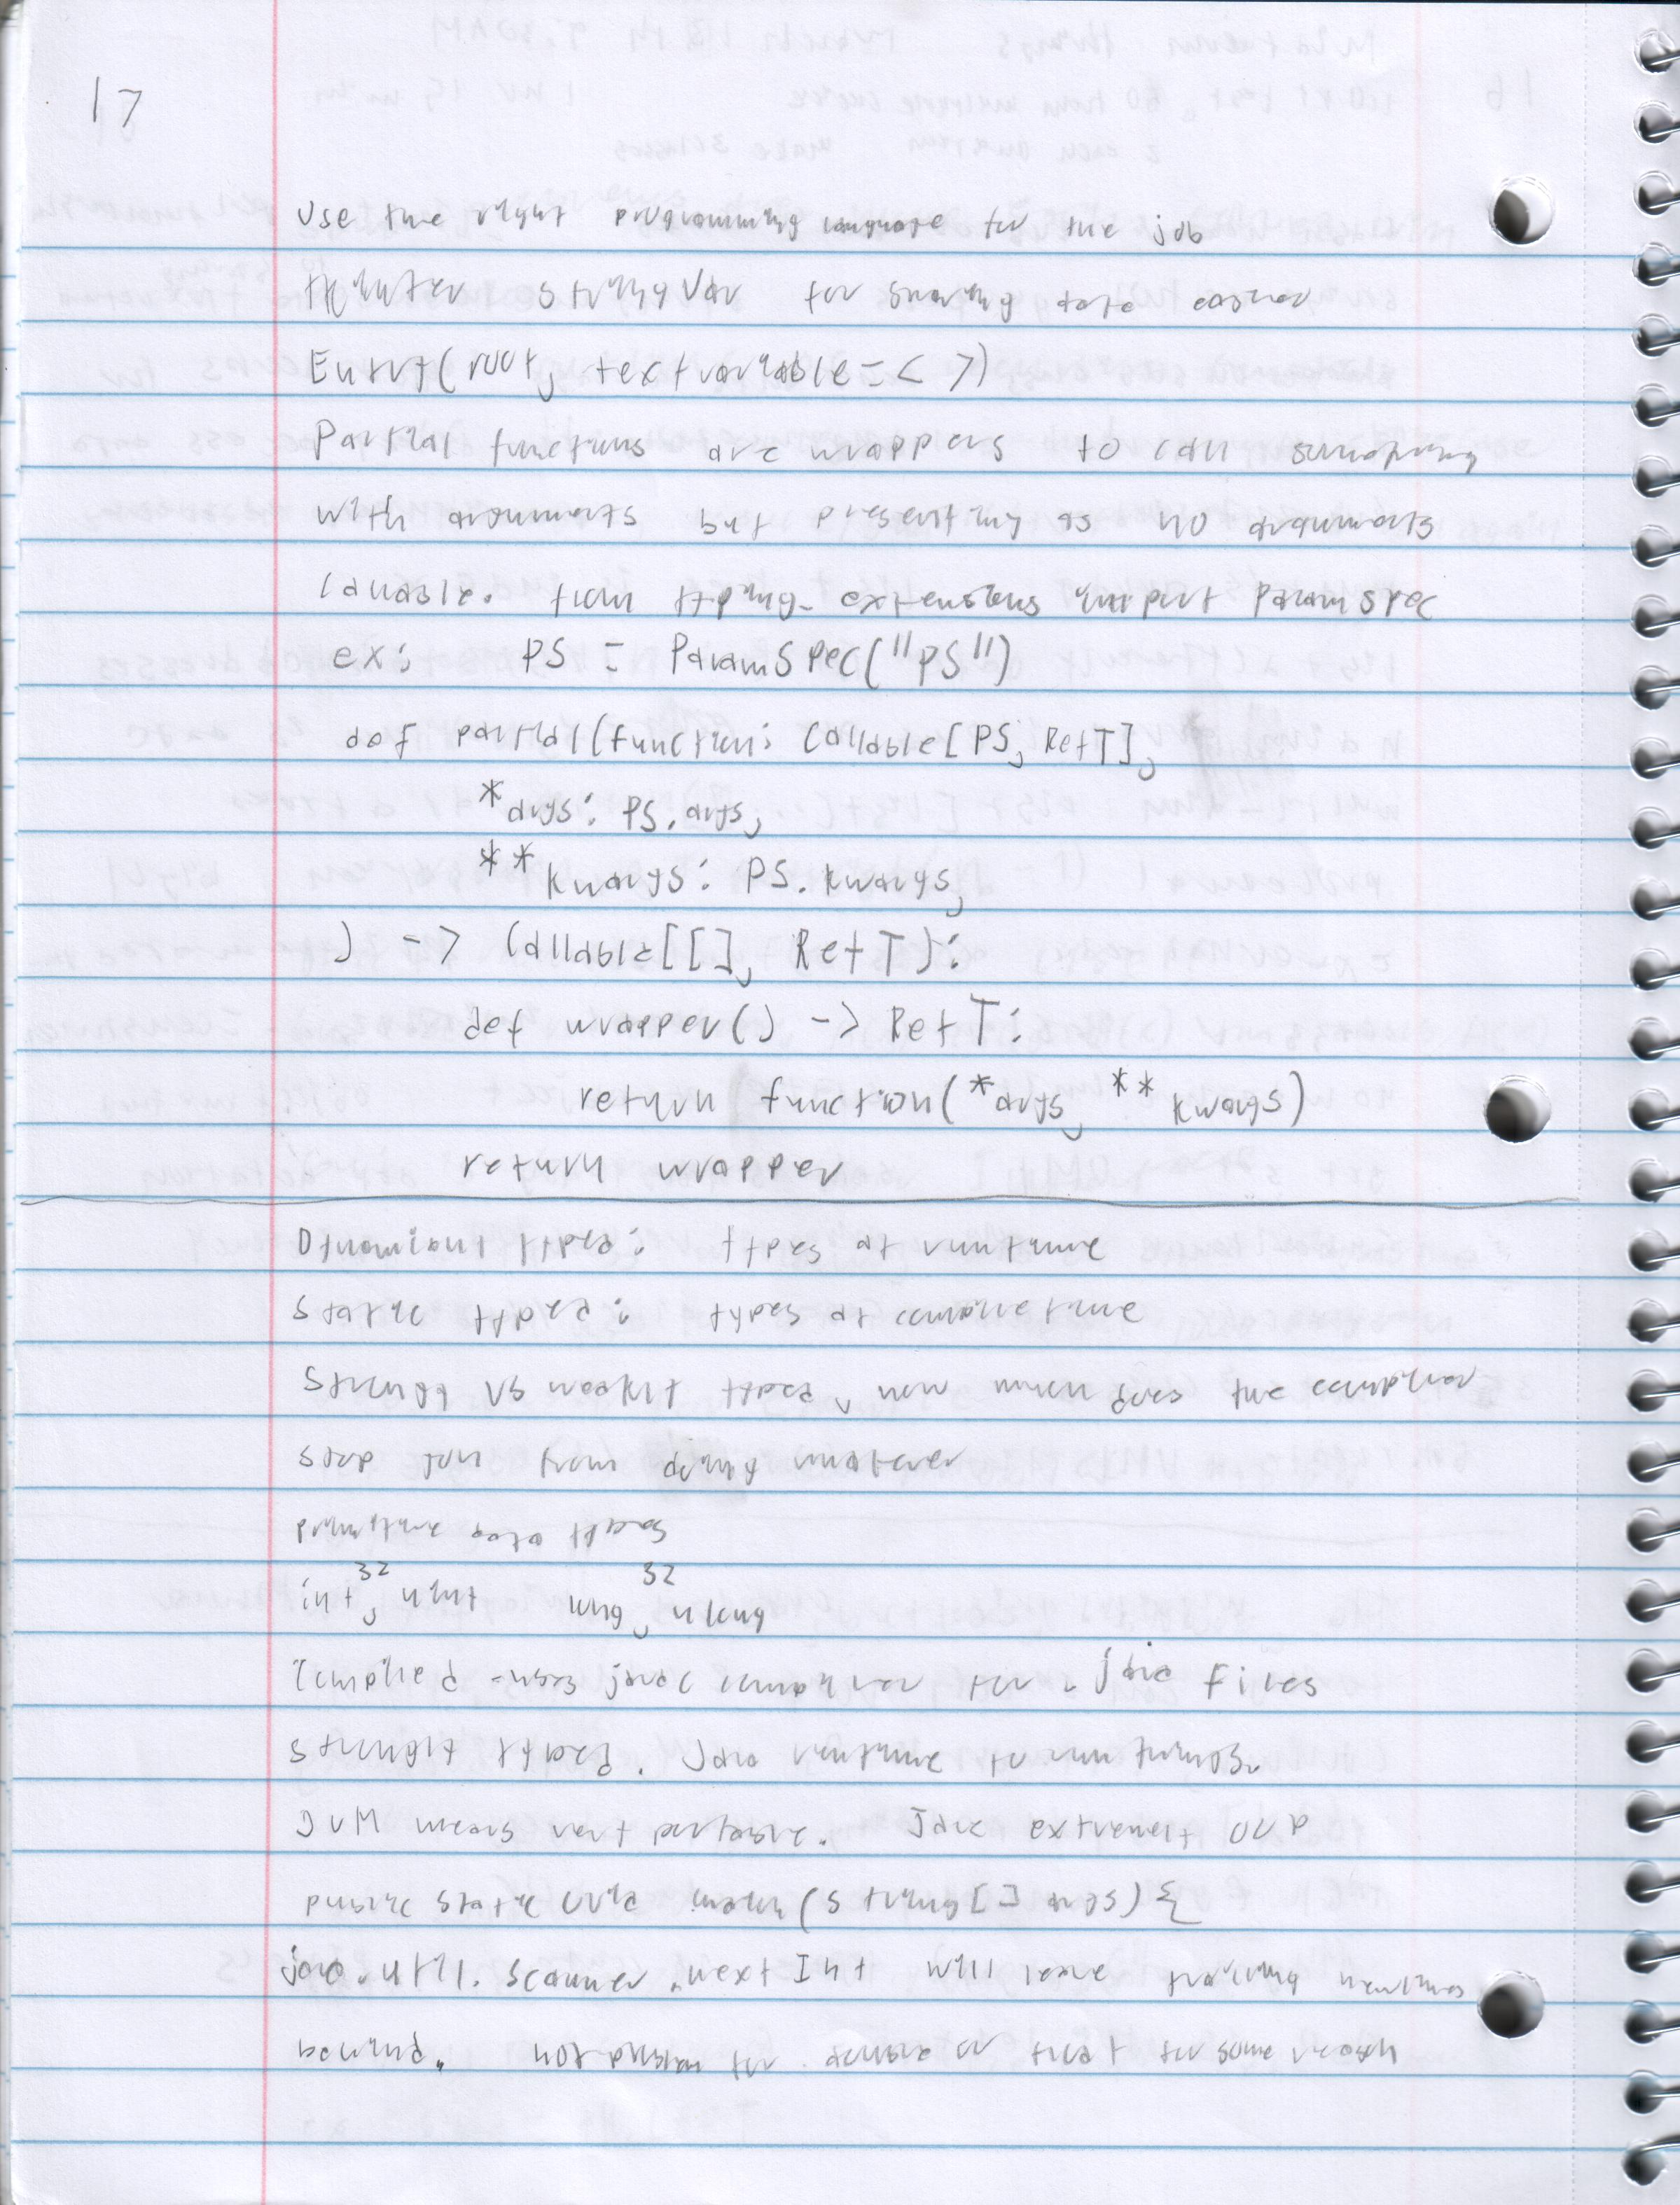 17
Use the right programming language for the job
tkinter StringVar for sharing data easier
Entry(root, textvariable=< >)
Partial functions are wrappers to call something
with arguments but presenting as no arguments
callable. from typing_extensions import ParamSpec
ex: PS = ParamSpec("PS")
def partial(function: Callable[PS, RetT],
*args: PS.args,
**kwargs: PS.kwargs,
) -> Callable[[], RetT]:
def wrapper() -> RetT:
return function(*args, **kwargs)
return wrapper
typed: types at runtime
Static typed: types at compile time
Strongly vs weakly typed, how much does the compiler
stop you from doing whatever
primitive data types
int, 32 uint long, 32 ulong
Compiled - uses javac compiler for .java files
strongly typed. Java runtime to run things.
JVM means very portable. Java extremely OOP
public static void main(String[] args) {
java.util.Scanner.nextInt will leave trailing newlines
behind. not problem for double or float for some reason